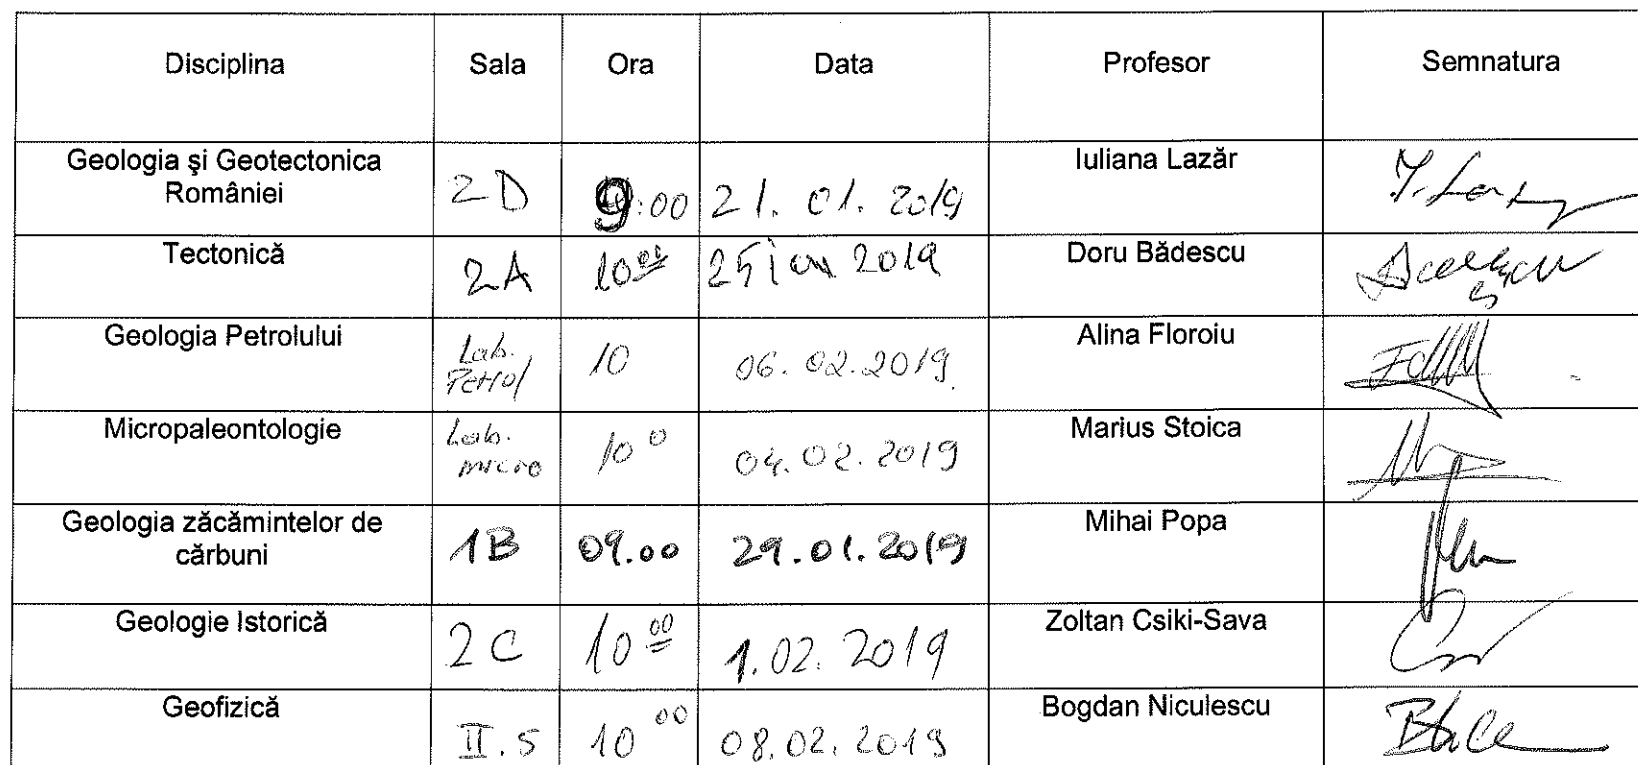 Disciplina Sala Ora Data Profesor Semnatura
Geologia şi Geotectonica
României
2D 9:00 21.01.2019 Iuliana Lazăr
Tectonică 2A 10⁰⁰ 25 ian 2019 Doru Bădescu
Geologia Petrolului Lab.
Petrol
10 06.02.2019 Alina Floroiu
Micropaleontologie Lab.
micro
10⁰ 04.02.2019 Marius Stoica
Geologia zăcămintelor de
cărbuni
1B 09.00 29.01.2019 Mihai Popa
Geologie Istorică 2C 10⁰⁰ 1.02.2019 Zoltan Csiki-Sava
Geofizică II.5 10⁰⁰ 08.02.2019 Bogdan Niculescu